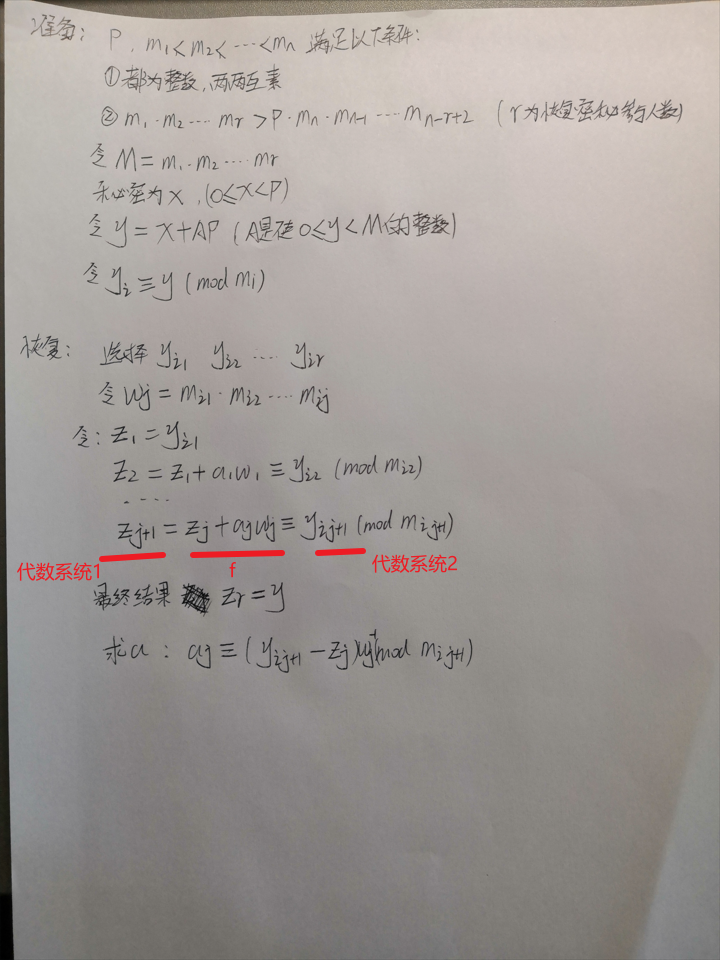 准备: P, m₁<m₂<……<mₙ 满足以下条件:
①都为整数,两两互素
② m₁·m₂……mr>P·mₙ·mₙ₋₁……mₙ₋r₊₂ (r为恢复密秘参与人数)
令 M=m₁·m₂……mr
秘密为x,(0≤x<P)
令 y=x+AP (A是使0≤y<M的整数)
令 yᵢ≡y (mod mᵢ)
恢复: 选择 yᵢ₁ yᵢ₂ …… yᵢr
令 wj=mᵢ₁·mᵢ₂……mᵢj
令: z₁=yᵢ₁
z₂=z₁+a₁w₁≡yᵢ₂ (mod mᵢ₂)
……
zj+1=zj+ajwj≡yᵢj+1 (mod mᵢj+1)
代数系统1 f 代数系统2
最终结果 zr=y
求a: aj≡(yᵢj+1-zj)wj⁻¹(mod mᵢj+1)